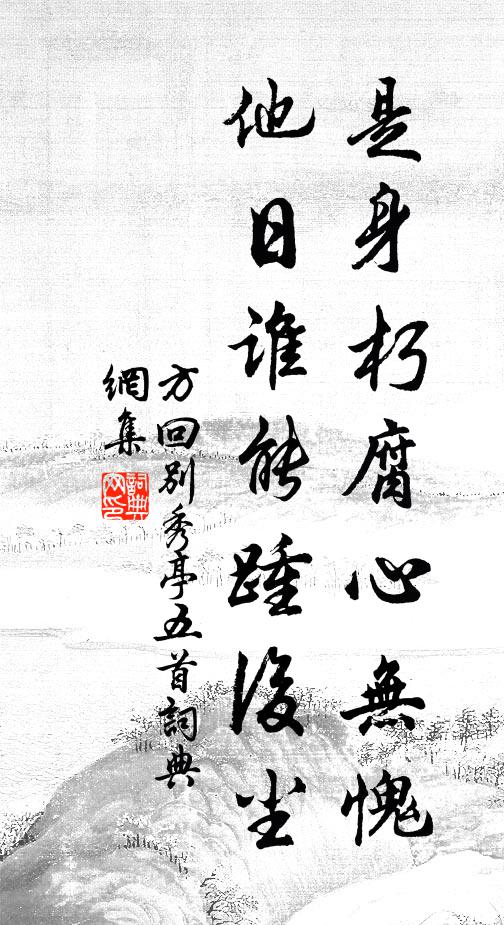 是身朽腐心無愧
他日誰能踵後尘
方回別秀亭五首詞典
網集
詞典
网印